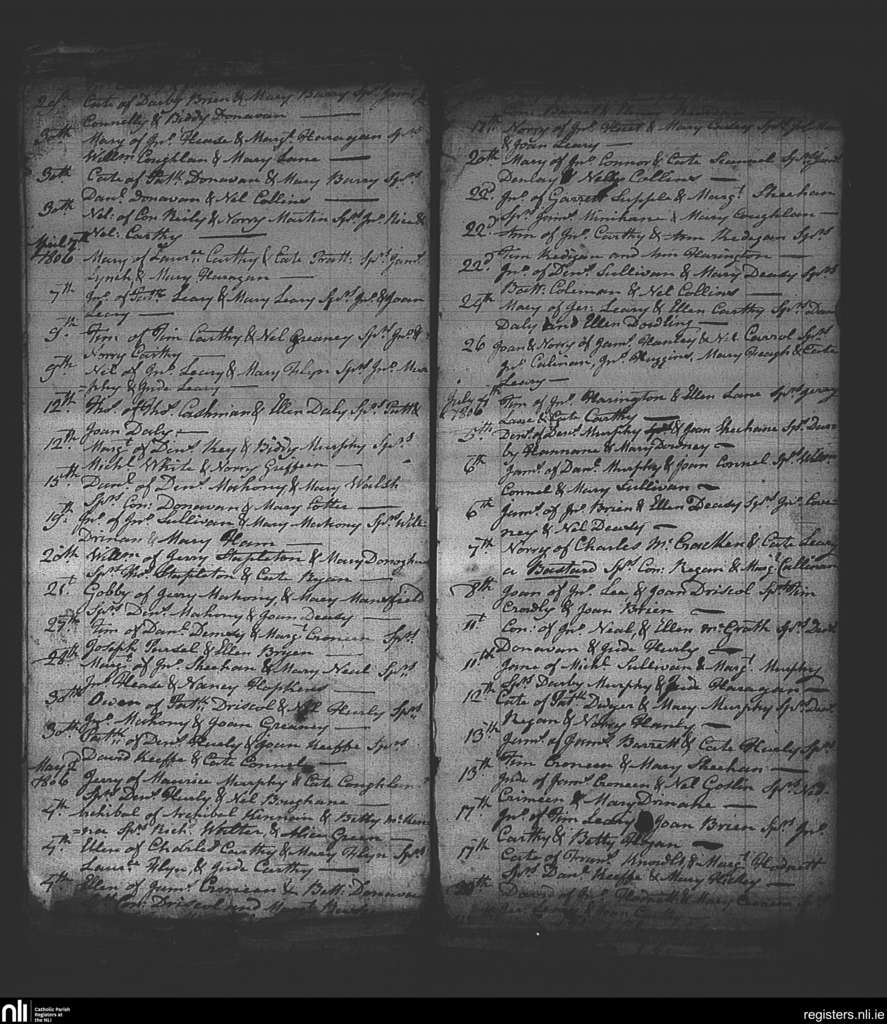 29th Cate of Darby Brien & Mary Barry Sps. James
Connelly & Biddy Donavan
30th Mary of Jno. Hease & Margt. Haragan Sps.
Willm. Coughlan & Mary Lane
30th Cate of Patk. Donavan & Mary Barry Sps.
Danl. Donavan & Nel Collins
30th Nel: of Con Reily & Norry Martin Sps. Jno. Rice &
Nel: Carthy
April 7th
1806 Mary of Laurce. Carthy & Cate Sps. James
Lynch & Mary Haragan
7th Jno. of Patk. Leary & Mary Leary Sps. Jno. & Joan
Leary
9th Tim: of Tim Carthy & Nel Greaney Sps. Jno. &
Norry Carthy
9th Nel of Jno. Leary & Mary Flyn Sps. Jno. Mur
=phy & Jude Leary
12th Thos. of Thos. Cashman & Ellen Daly Sps. Patk. &
Joan Daly
12th Margt. of Dens. Key & Biddy Murphy Sps.
Michl. White & Norry Griffen
15th Danl. of Denl. Mahony & Mary Walsh
Sps. Con: Donavan & Mary Cotter
19th Jno. of Jno. Sullivan & Mary Mahony Sps. Will
Drinan & Mary Ham
20th Willm. of Gerry Stapleton & Mary Donoghue
Sps. Thos. Stapleton & Cate Ryan
21t. Gobby of Gerry Mahony & Mary Mansfield
Sps. Denl. Mahony & Joan Deasy
27th Tim of Danl. Demsy & Margt. Croneen Sps.
Joseph Pursel & Ellen Bryen
28th Margt. of Jno. Sheehan & Mary Neal Sps.
Jno. Hease & Nancy Stephens
30th Owen of Patk. Driscol & Nel Hurly Sps.
Jno. Mahony & Joan Greaney
30th Patk. of Denl. Hurly & Joan Keeffe Sps.
David Keeffe & Cate Connel
May 2d
1806 Gerry of Maurice Murphy & Cate Coughlan
Sps. Denl. Hurly & Nel Brughane
4th Archibal of Archibel & Betty McKen
=na Sps. Richd. Walter & Alice Green
4th Ellen of Charles Carthy & Mary Flyn Sps.
Laurce. Flyn, & Jude Carthy
4th Ellen of James. Croneen & Bett: Donavan
Con: Driscol and
17th Norry of Jno. & Mary Sps.
& Joan Leary
20th Mary of Jno. Connor & Cate Sps. James
& Nelly Collins
22d. Jno. of Garrett Supple & Margt. Sheehan
Sps. James Minihane & Mary Coughlan
22d. Ann of Jno. Carthy & Ann Redigan Sps.
Tim Redigan and Ann Harington
22d Jno. of Denl. Sullivan & Mary Deasy Sps.
Batt: Coleman & Nel Collins
24th Mary of Jer: Leary & Ellen Carthy Sps. Dan
Daly and Ellen Dowling
26 Joan & Norry of James. Hanley & Nel Carrol Sps.
Jno. Culinan, Jno. Huggins, Mary Keogh & Cate
Leary
July 4th
1806 Tim of Jno. Harington & Ellen Lane Sps. Gerry
Lane & Cate Carthy
5th Denl. of Denl. Murphy & Joan Sheehane Sps. Dar
by Hannane & Mary Downey
6th James. of Danl. Murphy & Joan Connel Sps. Willm.
Connel & Mary Sullivan
6th James. of Jno. Brien & Ellen Deasy Sps. Jno. Cove
ney & Nel Deasy
7th Norry of Charles Mc. Cracken & Cate Leary
a Bastard Sps. Con: Regan & Margt. Callinan
8th Joan of Jno. Lee & Joan Driscol Sps. Tim
Crowly & Joan Brien
11t. Con: of Jno. Neal, & Ellen McCrath Sps. Danl.
Donavan & Jude Hurly
11th of Michl. Sullivan & Margt. Murphy
Sps. Darby Murphy & Jude Haragan
12th Cate of Patk. Dwyer & Mary Murphy Sps. Danl.
Regan & Norry Hanly
13th James. of James. Barrett & Cate Hurly Sps.
Tim Croneen & Mary Sheehan
13th Jude of James. Croneen & Nel Goslin Sps. Ned
Crimeen & Mary Dinahe
17th Jno. of Tim Leahy & Joan Brien Sps. Jno.
Carthy & Betty Hogan
17th Cate of & Margt. Hodnett
Sps. Danl. Keeffe & Mary Hickey
20th David of Jno. Hodnett & Mary Croneen
Jer: Leary & Joan
nli
Catholic Parish
Registers at
the NLI
registers.nli.ie